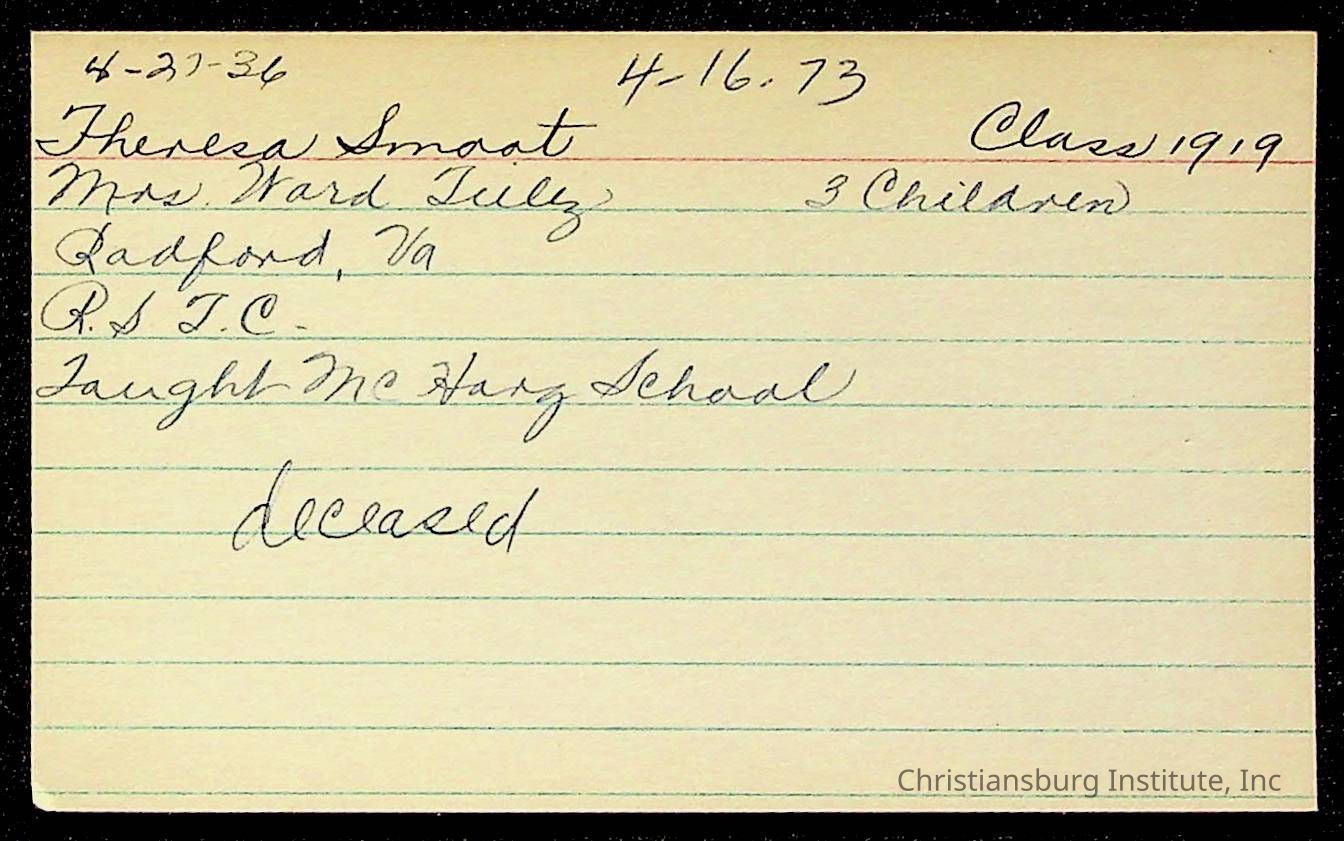 4-27-36 4-16-73
Theresa Smoot Class 1919
Mrs. Ward 3 Children
Radford, Va
R.S T.C.
Taught McHarg School
deceased
Christiansburg Institute, Inc